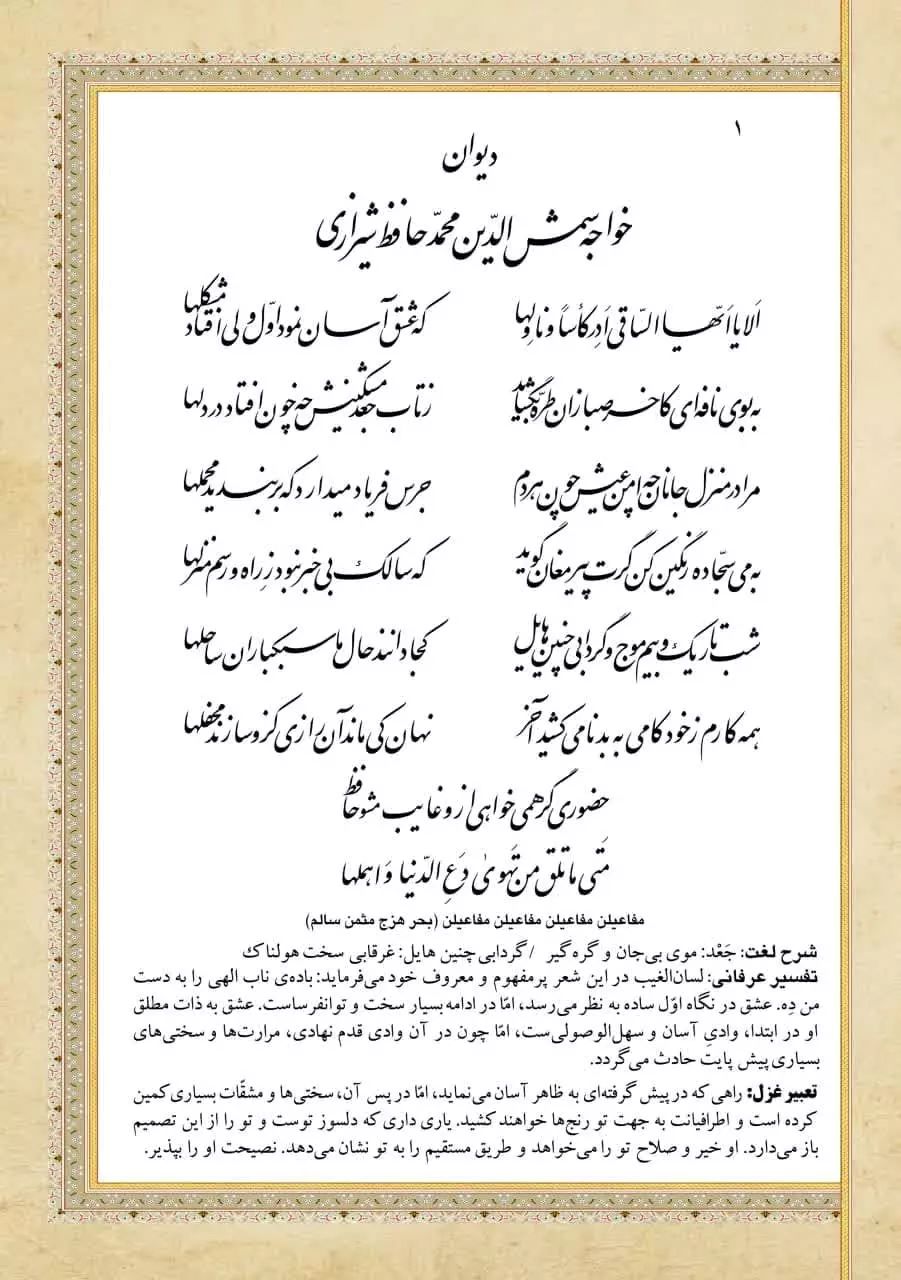 ۱
دیوان
خواجه شمس الدّین محمّد حافظ شیرازی
اَلا یا اَیّها السّاقی اَدِر کأساً و ناوِلها که عشق آسان نمود اوّل ولی افتاد مشکلها
به بوی نافه‌ای کاخر صبا زان طرّه بگشاید ز تاب جعد مشکینش چه خون افتاد در دلها
مرا در منزل جانان چه امن عیش چون هر دم جرس فریاد می‌دارد که بربندید محملها
به می سجّاده رنگین کن گرت پیر مغان گوید که سالک بی‌خبر نبود زِ راه و رسم منزلها
شب تاریک و بیم موج و گردابی چنین هایل کجا دانند حال ما سبکباران ساحلها
همه کارم ز خود کامی به بدنامی کشید آخر نهان کی ماند آن رازی کزو سازند محفلها
حضوری گر همی خواهی از او غایب مشو حافظ
مَتی ما تلق من تَهویٰ دَعِ الدّنیا وَ اهملها
مفاعیلن مفاعیلن مفاعیلن مفاعیلن (بحر هزج مثمن سالم)
شرح لغت: جَعْد: موی بی‌جان و گره‌گیر / گردابی چنین هایل: غرقابی سخت هولناک
تفسیر عرفانی: لسان‌الغیب در این شعر پرمفهوم و معروف خود می‌فرماید: باده‌ی ناب الهی را به دست
من دِه. عشق در نگاه اوّل ساده به نظر می‌رسد، امّا در ادامه بسیار سخت و توانفرساست. عشق به ذات مطلق
او در ابتدا، وادیِ آسان و سهل‌الوصولی‌ست، امّا چون در آن وادی قدم نهادی، مرارت‌ها و سختی‌های
بسیاری پیش پایت حادث می‌گردد.
تعبیر غزل: راهی که در پیش گرفته‌ای به ظاهر آسان می‌نماید، امّا در پس آن، سختی‌ها و مشقّات بسیاری کمین
کرده است و اطرافیانت به جهت تو رنج‌ها خواهند کشید. یاری داری که دلسوز توست و تو را از این تصمیم
باز می‌دارد. او خیر و صلاح تو را می‌خواهد و طریق مستقیم را به تو نشان می‌دهد. نصیحت او را بپذیر.